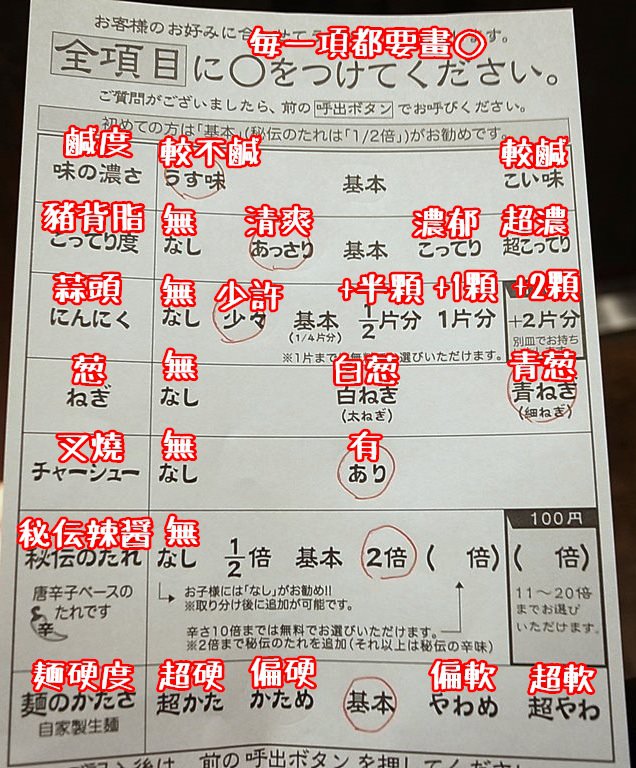 お客様のお好みに合
ます。
每一項都要畫○
全項目に○をつけてください。
ご質問がございましたら、前の呼出ボタンでお呼びください。
初めての方は「基本」(秘伝のたれは「1/2倍」)がお勧めです。
鹹度 較不鹹 較鹹
味の濃さ うす味 基本 こい味
豬背脂 無 清爽 濃郁 超濃
こってり度 なし あっさり 基本 こってり 超こってり
蒜頭 無 少許 +半顆 +1顆 +2顆
にんにく なし 少々 基本 1/2片分 1片分 +2片分
(1/4片分) 別皿でお持ち
※1片まで無料でお選びいただけます。
葱 無 白葱 青葱
ねぎ なし 白ねぎ 青ねぎ
(太ねぎ) (細ねぎ)
叉燒 無 有
チャーシュー なし あり
秘伝辣醬 無 100円
秘伝のたれ なし 1/2倍 基本 2倍 ( 倍) ( 倍)
唐辛子ベースの
たれです
辛
お子様には「なし」がお勧め!!
※取り分け後に追加が可能です。
辛さ10倍までは無料でお選びいただけます。
※2倍まで秘伝のたれを追加(それ以上は秘伝の辛味)
11〜20倍
までお選び
いただけます。
麵硬度 超硬 偏硬 偏軟 超軟
麺のかたさ 超かた かため 基本 やわめ 超やわ
自家製生麺
後は、前の呼出ボタンを押してくだ